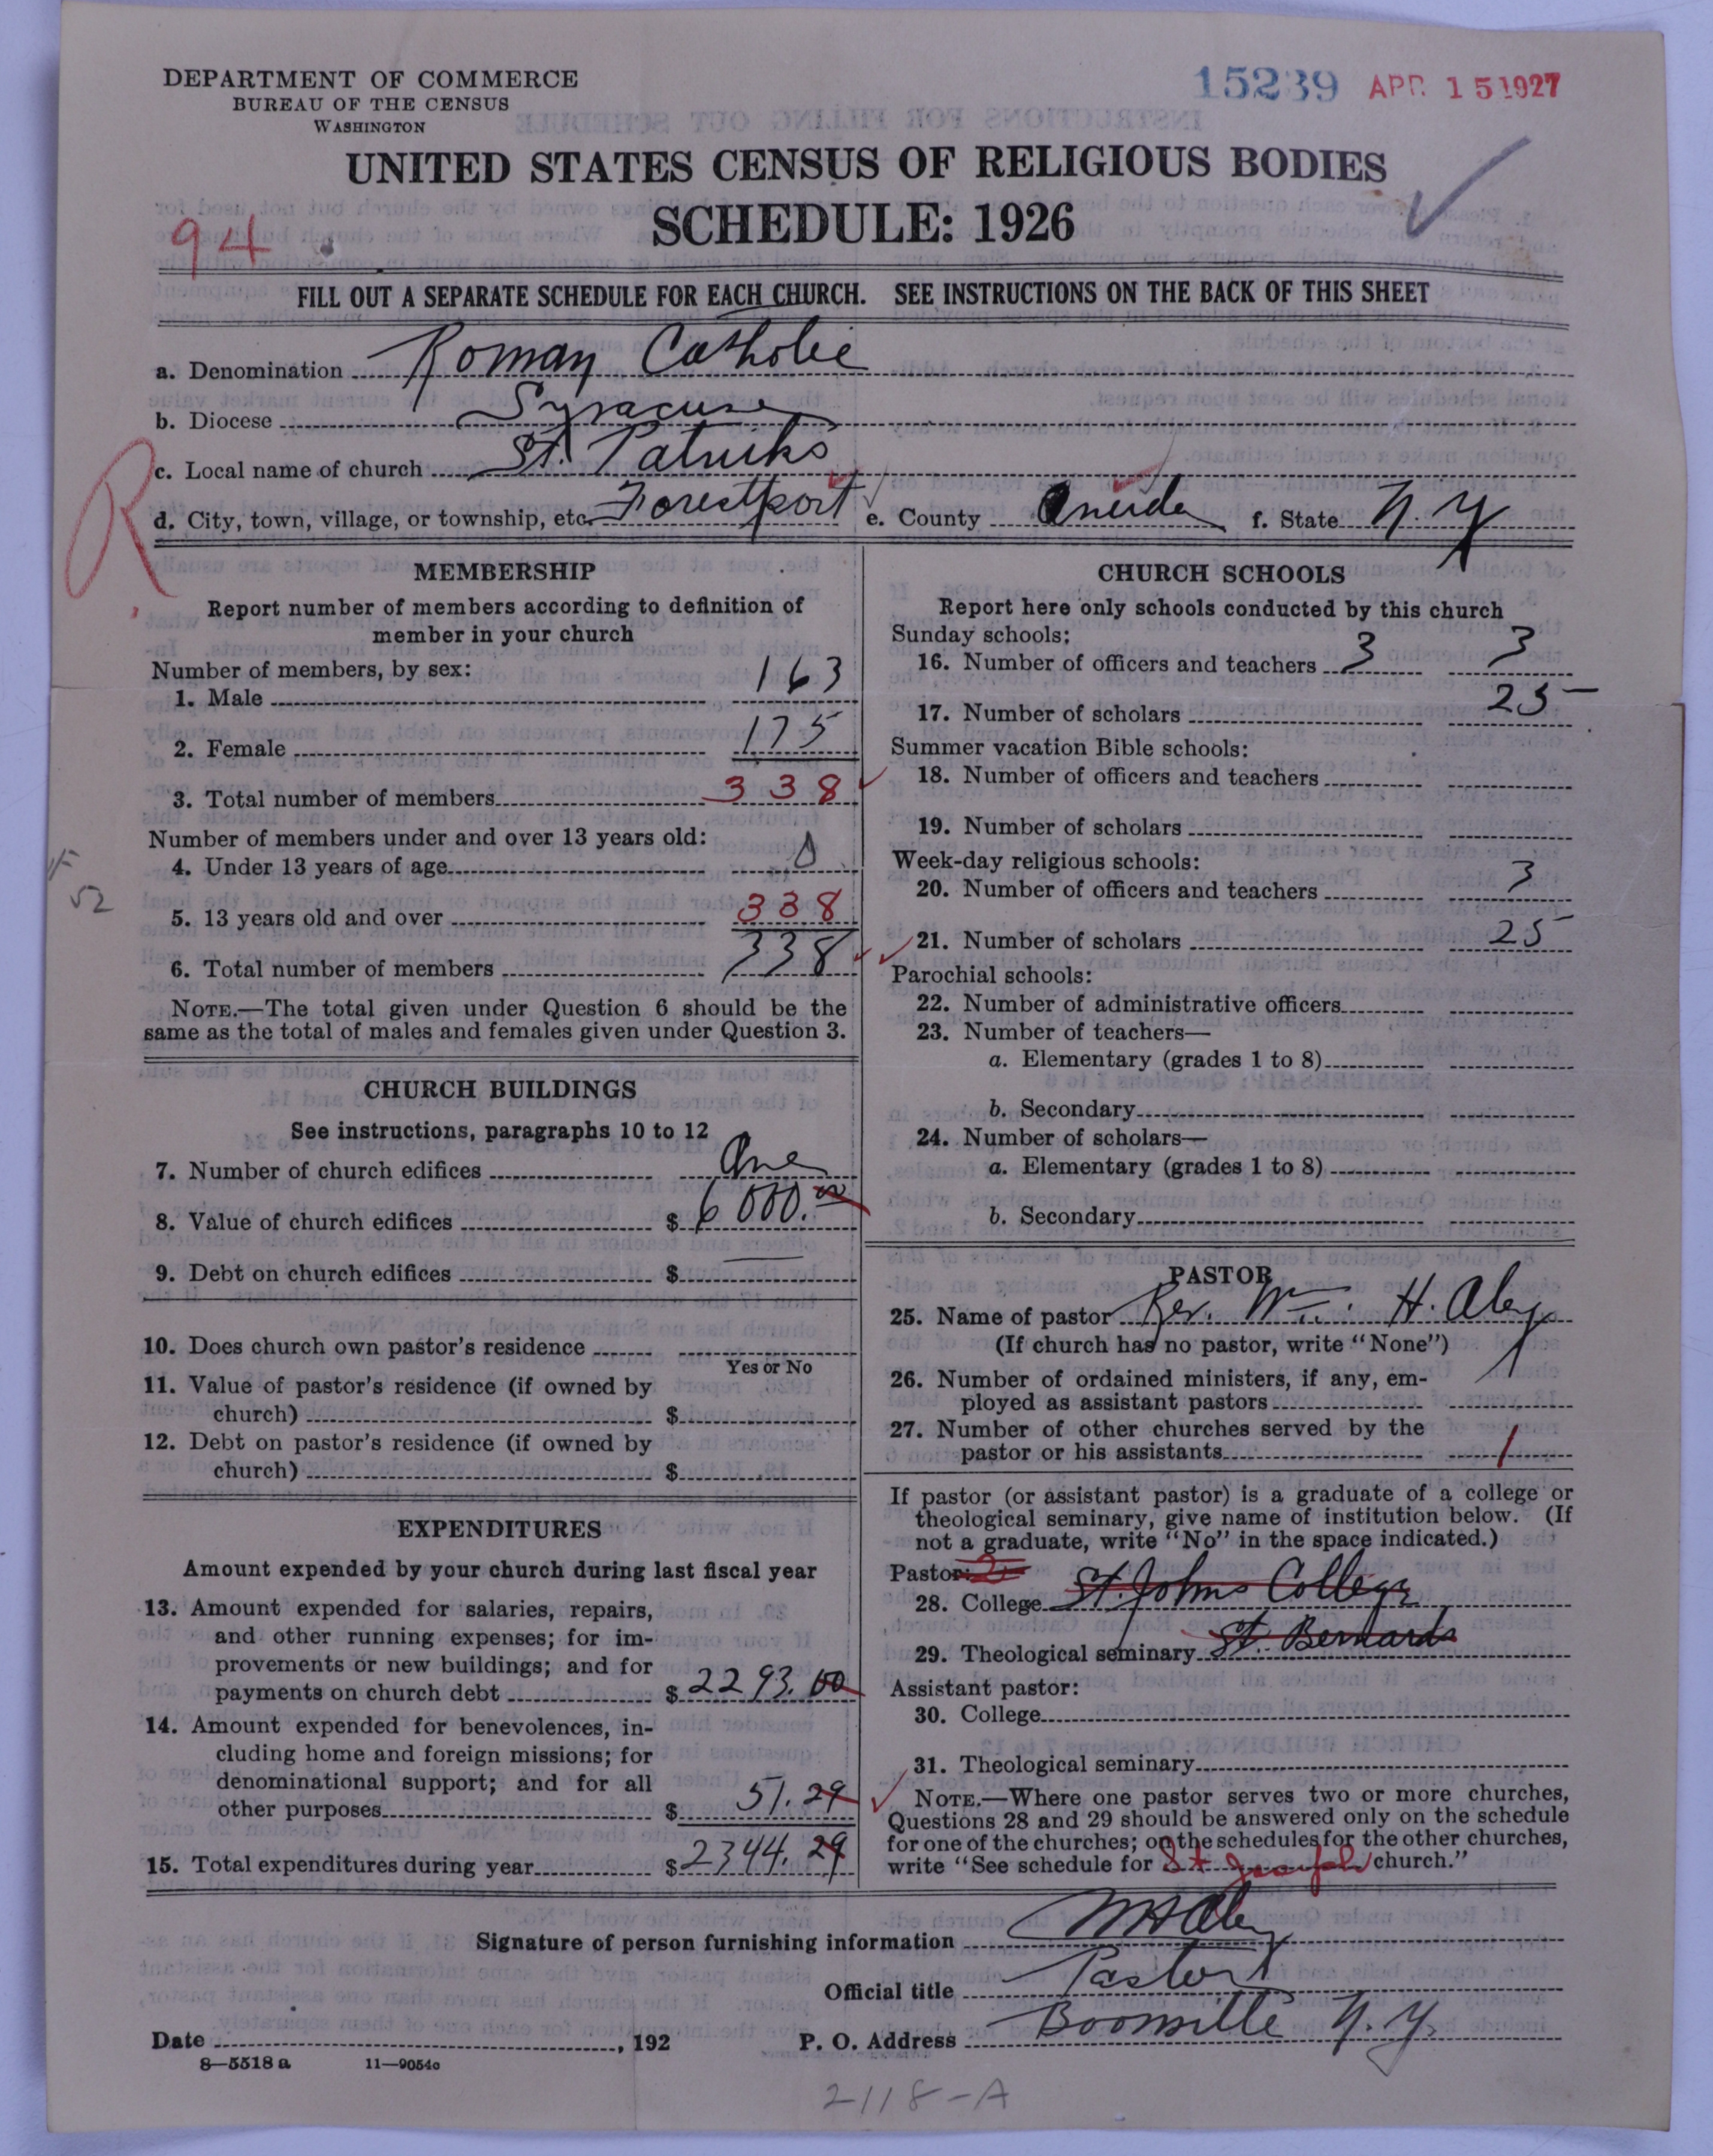 DEPARTMENT OF COMMERCE
BUREAU OF THE CENSUS
WASHINGTON
15239 APR 15 1927
UNITED STATES CENSUS OF RELIGIOUS BODIES
SCHEDULE: 1926
94
FILL OUT A SEPARATE SCHEDULE FOR EACH CHURCH. SEE INSTRUCTIONS ON THE BACK OF THIS SHEET
a. Denomination Roman Catholic
b. Diocese Syracuse
R
c. Local name of church St. Patricks
d. City, town, village, or township, etc. Forestport e. County Oneida f. State N.Y
MEMBERSHIP
Report number of members according to definition of
member in your church
Number of members, by sex:
1. Male 163
2. Female 175
3. Total number of members 338
Number of members under and over 13 years old:
4. Under 13 years of age 0
52
5. 13 years old and over 338
6. Total number of members 338
NOTE.—The total given under Question 6 should be the
same as the total of males and females given under Question 3.
CHURCH BUILDINGS
See instructions, paragraphs 10 to 12
7. Number of church edifices One
8. Value of church edifices $ 6000.00
9. Debt on church edifices $ —
10. Does church own pastor's residence
Yes or No
11. Value of pastor's residence (if owned by
church) $
12. Debt on pastor's residence (if owned by
church) $
EXPENDITURES
Amount expended by your church during last fiscal year
13. Amount expended for salaries, repairs,
and other running expenses; for im-
provements or new buildings; and for
payments on church debt $ 2293.00
14. Amount expended for benevolences, in-
cluding home and foreign missions; for
denominational support; and for all
other purposes $ 51.29
15. Total expenditures during year $ 2344.29
CHURCH SCHOOLS
Report here only schools conducted by this church
Sunday schools:
16. Number of officers and teachers 3 3
17. Number of scholars 25
Summer vacation Bible schools:
18. Number of officers and teachers
19. Number of scholars
Week-day religious schools:
20. Number of officers and teachers 3
21. Number of scholars 25
Parochial schools:
22. Number of administrative officers
23. Number of teachers—
a. Elementary (grades 1 to 8)
b. Secondary
24. Number of scholars—
a. Elementary (grades 1 to 8)
b. Secondary
PASTOR
25. Name of pastor Rev. Wm. H. Aley
(If church has no pastor, write "None")
26. Number of ordained ministers, if any, em-
ployed as assistant pastors
27. Number of other churches served by the
pastor or his assistants 1
If pastor (or assistant pastor) is a graduate of a college or
theological seminary, give name of institution below. (If
not a graduate, write "No" in the space indicated.)
Pastor: 2
28. College St. Johns College
29. Theological seminary St. Bernards
Assistant pastor:
30. College
31. Theological seminary
NOTE.—Where one pastor serves two or more churches,
Questions 28 and 29 should be answered only on the schedule
for one of the churches; on the schedules for the other churches,
write "See schedule for St Joseph church."
Signature of person furnishing information WH Aley
Official title Pastor
Date , 192 P. O. Address Boonville N.Y.
8—5518 a 11—9054c
2118-A